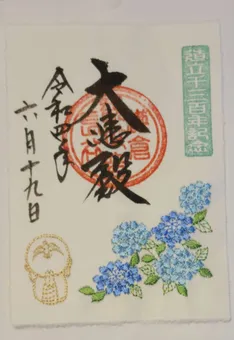 造立千三百年記念
大悲殿
令和四年
六月十九日